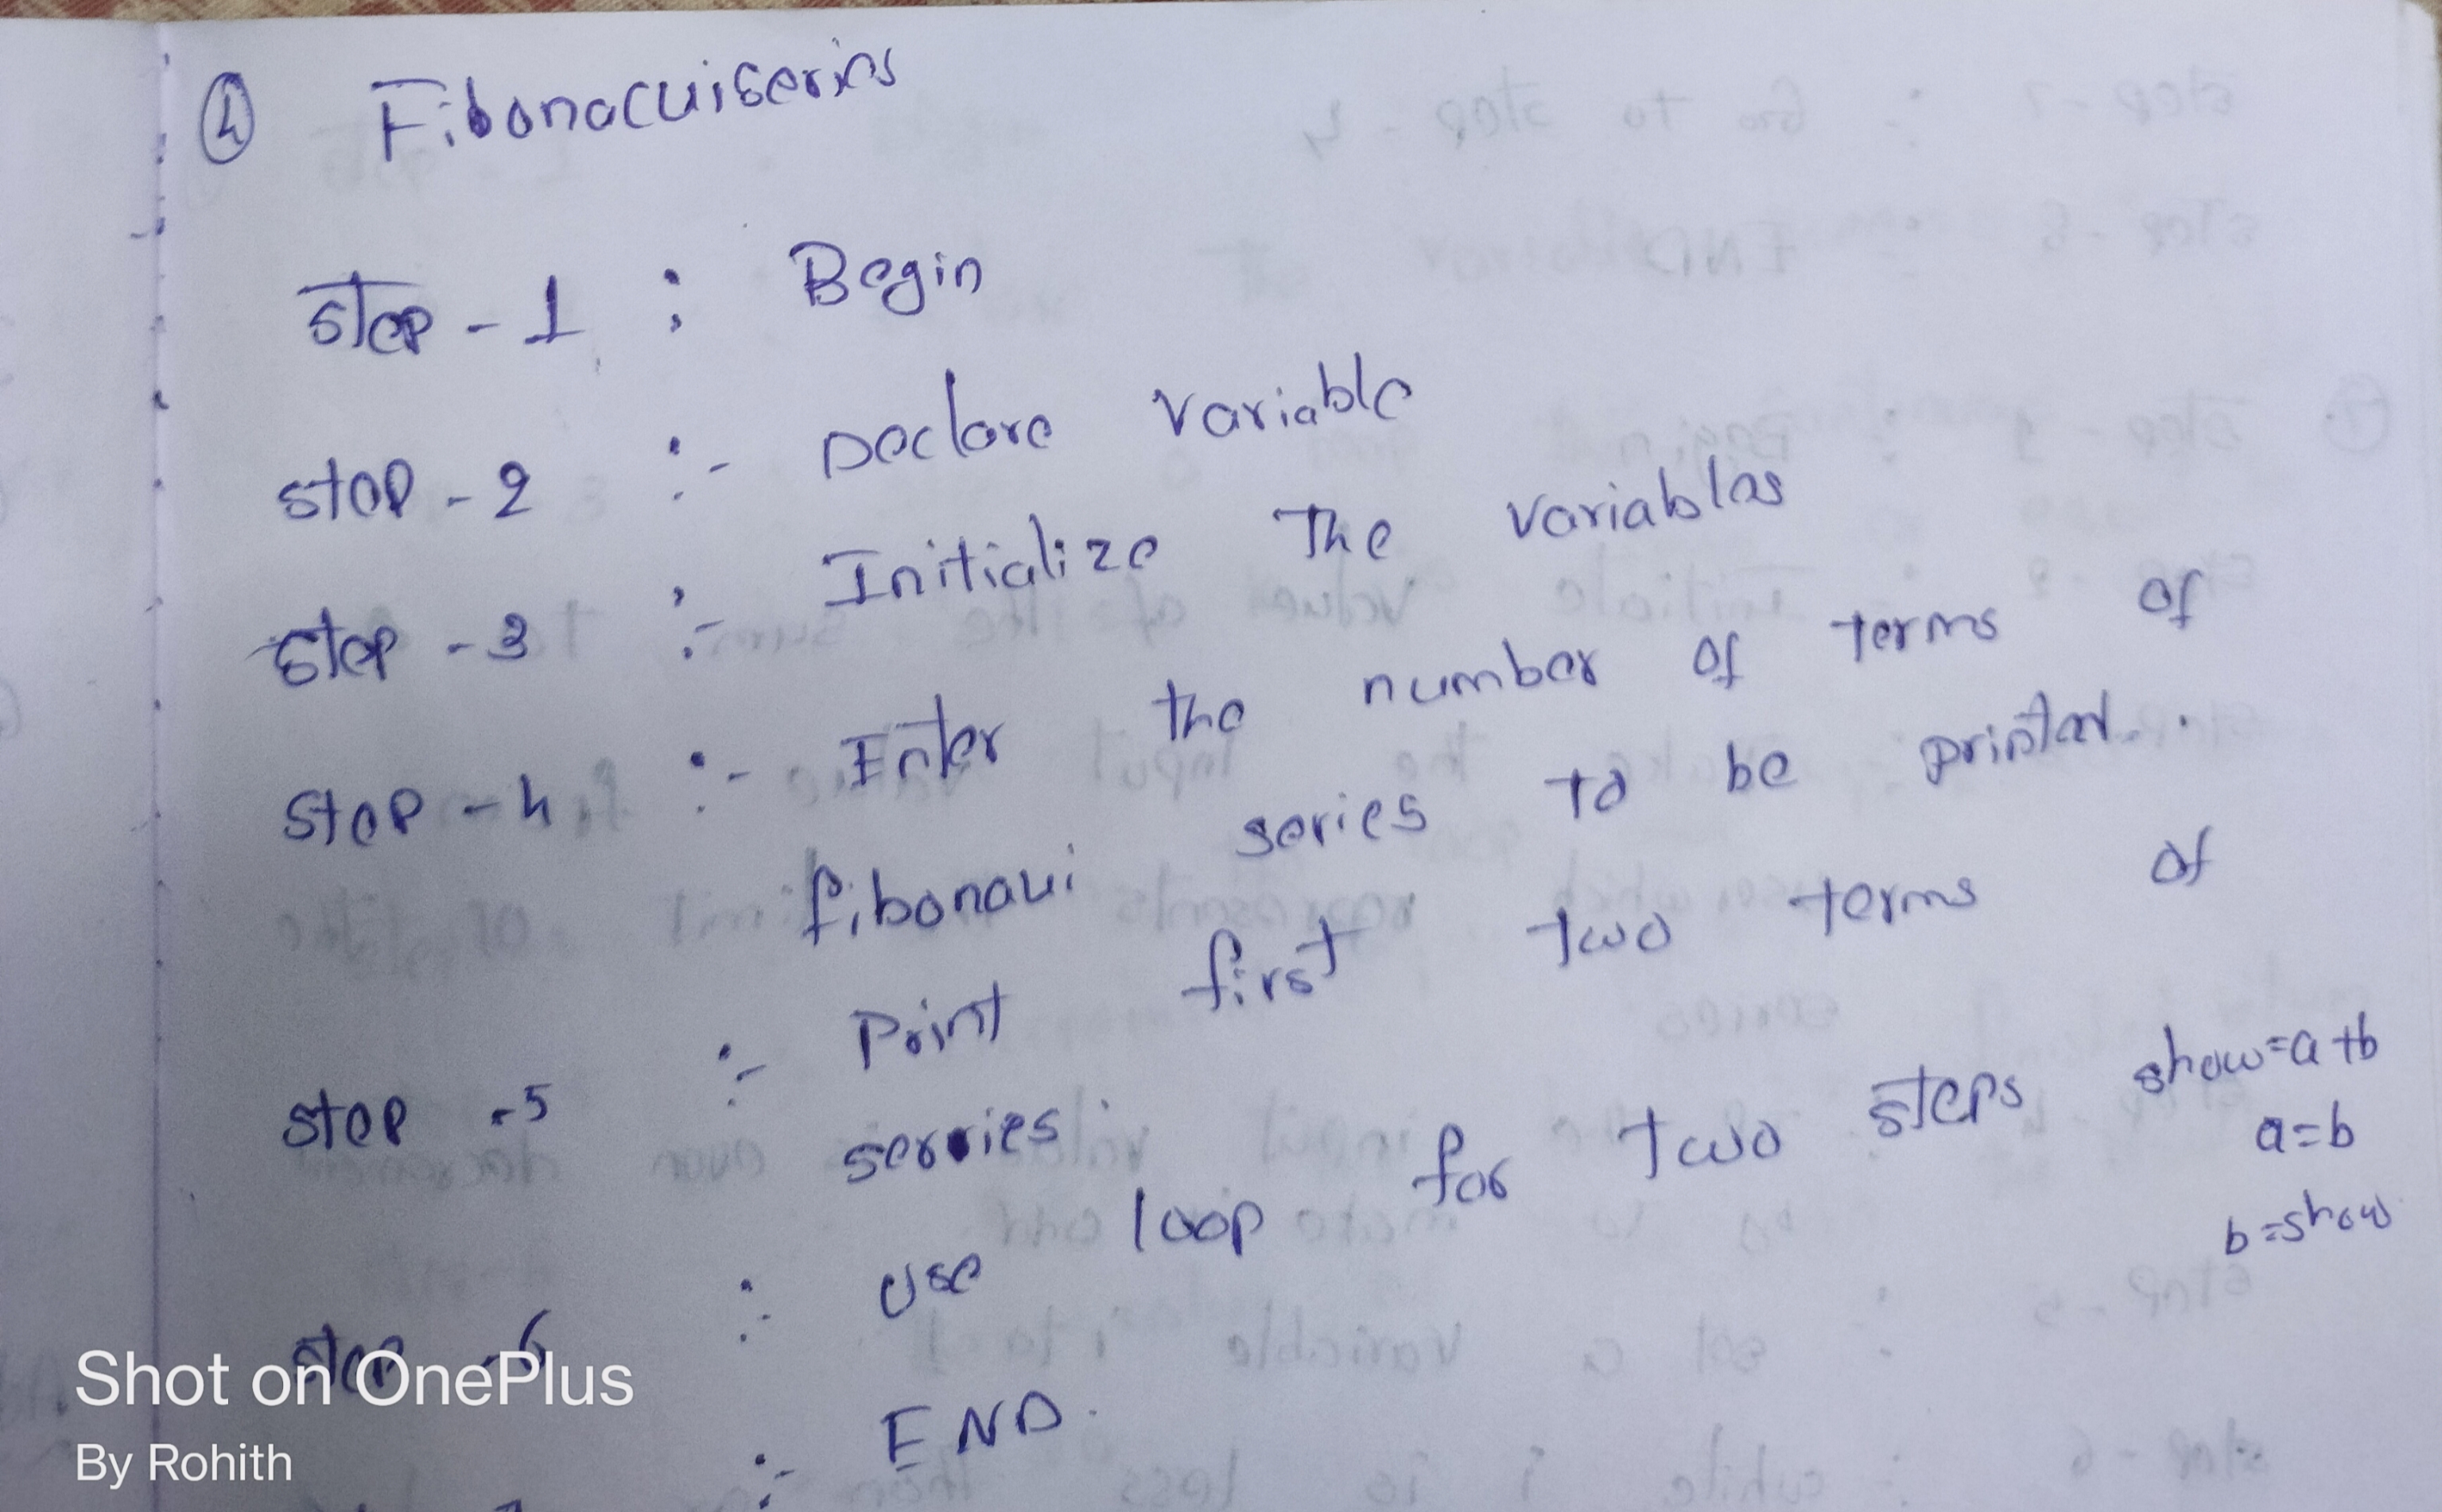 ④ Fibonacci series
Step - 1 : Begin
step - 2 :- Declare variable
Step - 3 :- Initialize The variables
step - 4 :- Enter the number of terms of
fibonacci series to be printed.
step - 5 :- Print first two terms of
series.
step - 6 : use loop for two steps show=a+b
a=b
b=show
:- END.
Shot on OnePlus
By Rohith